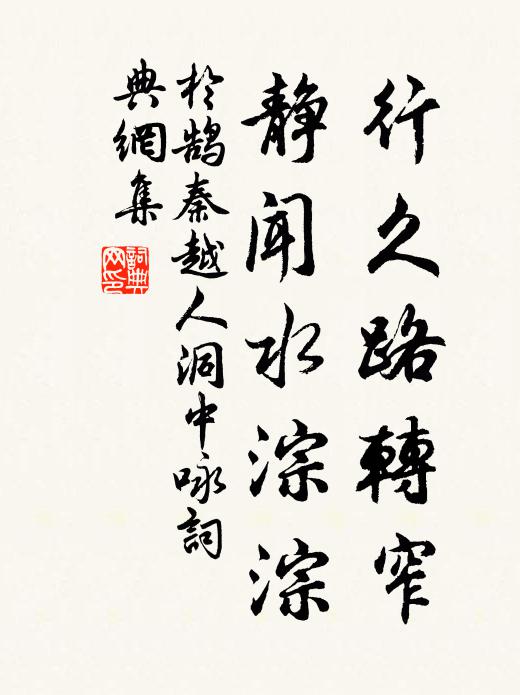 行久路轉窄
静聞水淙淙
於鹄秦越人洞中咏詞
典網集
詞典
网印